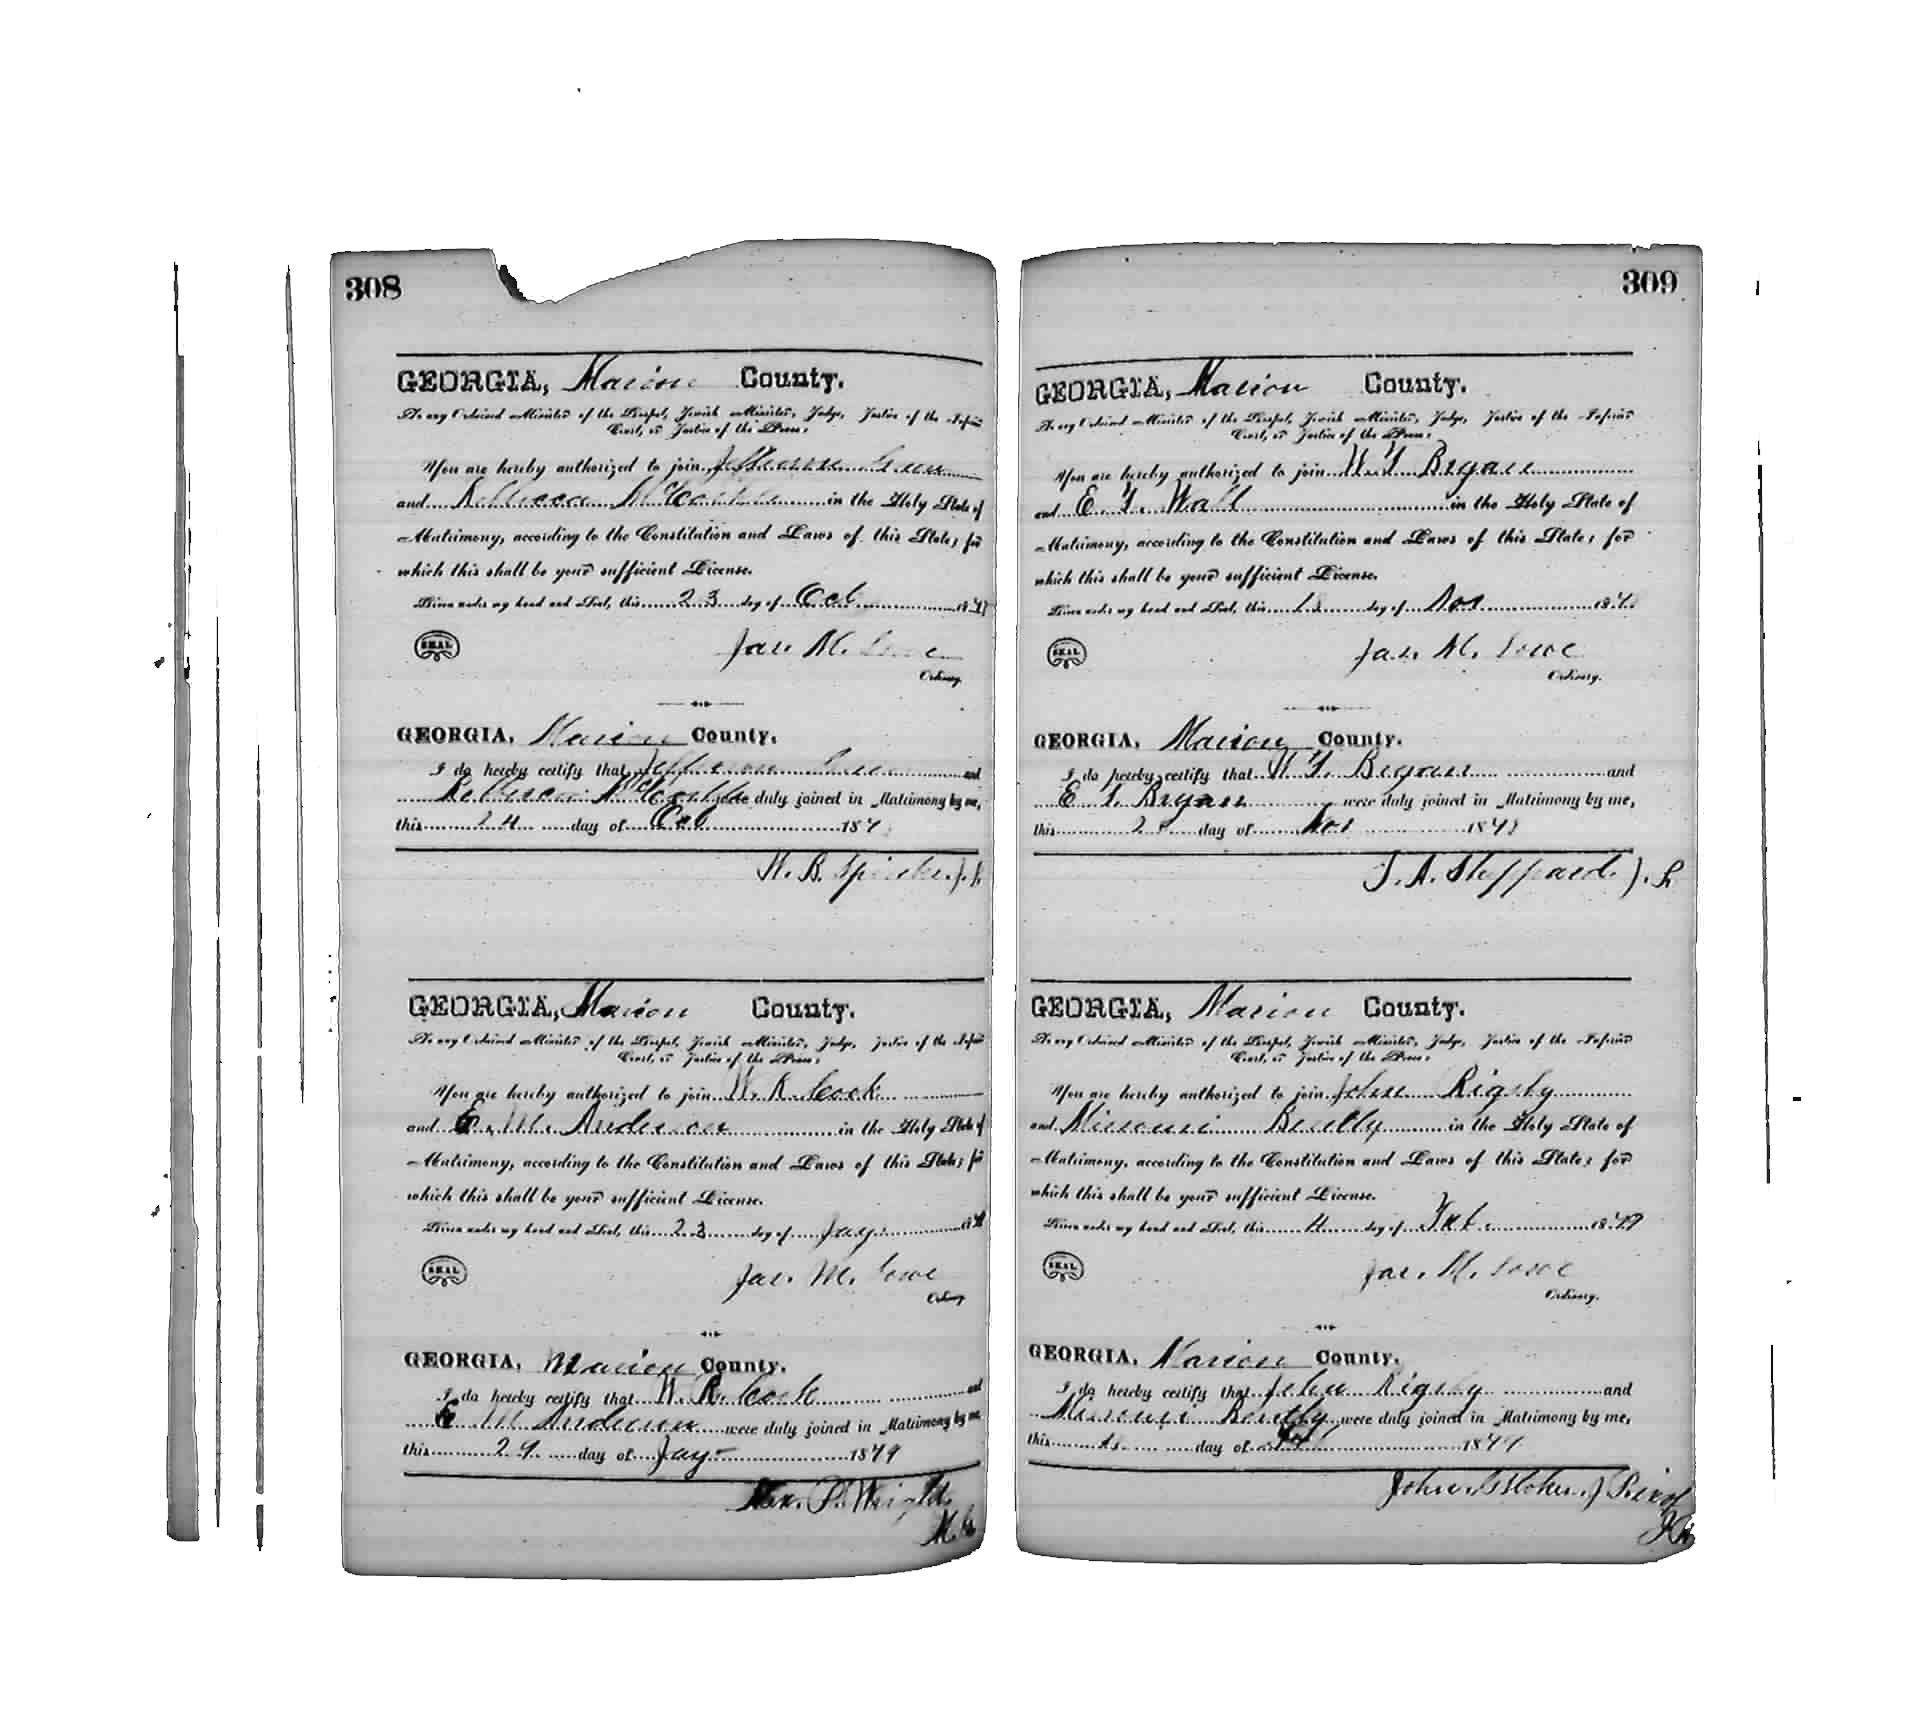 308
GEORGIA, Marion County.
To any Ordained Minister of the Gospel, Jewish Minister, Judge, Justice of the Inferior
Court, or Justice of the Peace:
You are hereby authorized to join
and Rebecca in the Holy State of
Matrimony, according to the Constitution and Laws of this State; for
which this shall be your sufficient License.
Given under my hand and Seal, this 23 day of Oct 187
SEAL
Jas. M. Lowe
Ordinary.
GEORGIA, Marion County.
I do hereby certify that Jefferson and
were duly joined in Matrimony by me,
this 24 day of Oct 187
W. B.
GEORGIA, Marion County.
To any Ordained Minister of the Gospel, Jewish Minister, Judge, Justice of the Inferior
Court, or Justice of the Peace:
You are hereby authorized to join W. R. Cook
and M. Anderson in the Holy State of
Matrimony, according to the Constitution and Laws of this State; for
which this shall be your sufficient License.
Given under my hand and Seal, this 23 day of Jay. 187
SEAL
Jas. M. Lowe
Ordinary
GEORGIA, Marion County.
I do hereby certify that W. R. Cook and
M Anderson were duly joined in Matrimony by me
this 29 day of Jay 1879
P. Wright
309
GEORGIA, Marion County.
To any Ordained Minister of the Gospel, Jewish Minister, Judge, Justice of the Inferior
Court, or Justice of the Peace:
You are hereby authorized to join W. T. Bryan
and E. T. Wall in the Holy State of
Matrimony, according to the Constitution and Laws of this State; for
which this shall be your sufficient License.
Given under my hand and Seal, this day of Nov 187
SEAL
Jas. M. Lowe
Ordinary.
GEORGIA, Marion County.
I do hereby certify that W. T. Bryan and
E T. Bryan were duly joined in Matrimony by me,
this day of Nov 187
T. A. Sheppard J. P.
GEORGIA, Marion County.
To any Ordained Minister of the Gospel, Jewish Minister, Judge, Justice of the Inferior
Court, or Justice of the Peace:
You are hereby authorized to join John Rigsby
and Missouri in the Holy State of
Matrimony, according to the Constitution and Laws of this State; for
which this shall be your sufficient License.
Given under my hand and Seal, this 4 day of 1879
SEAL
Jas. M. Lowe
Ordinary.
GEORGIA, Marion County.
I do hereby certify that John Rigsby and
Missouri were duly joined in Matrimony by me,
this day of 1879
John